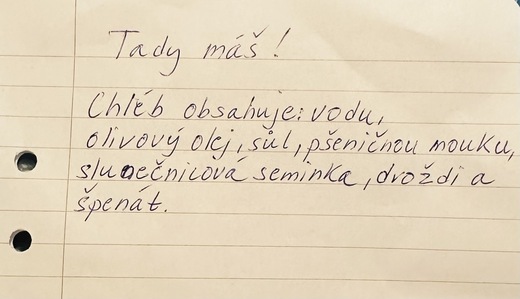 Tady máš!
Chléb obsahuje: vodu,
olivový olej, sůl, pšeničnou mouku,
slunečnicová seminka, droždi a
špenát.